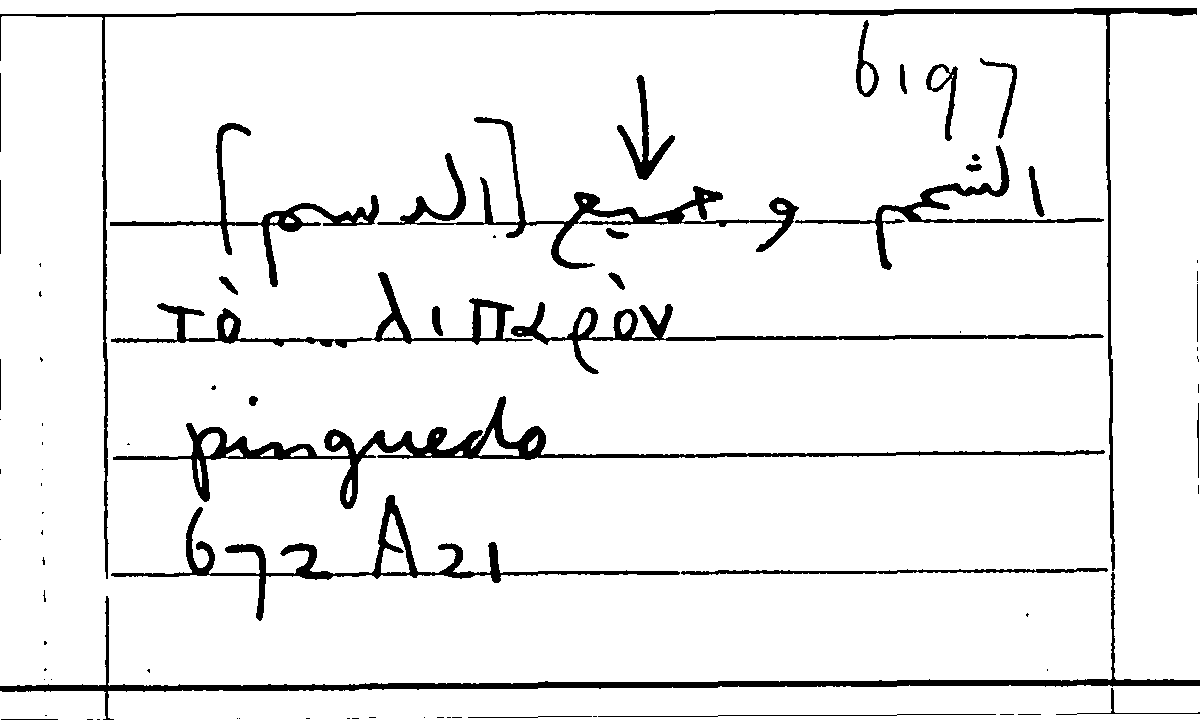 6197
↓
الشحم و جميع [الدسم]
τὸ .... λιπαρὸν
pinguedo
672 A21